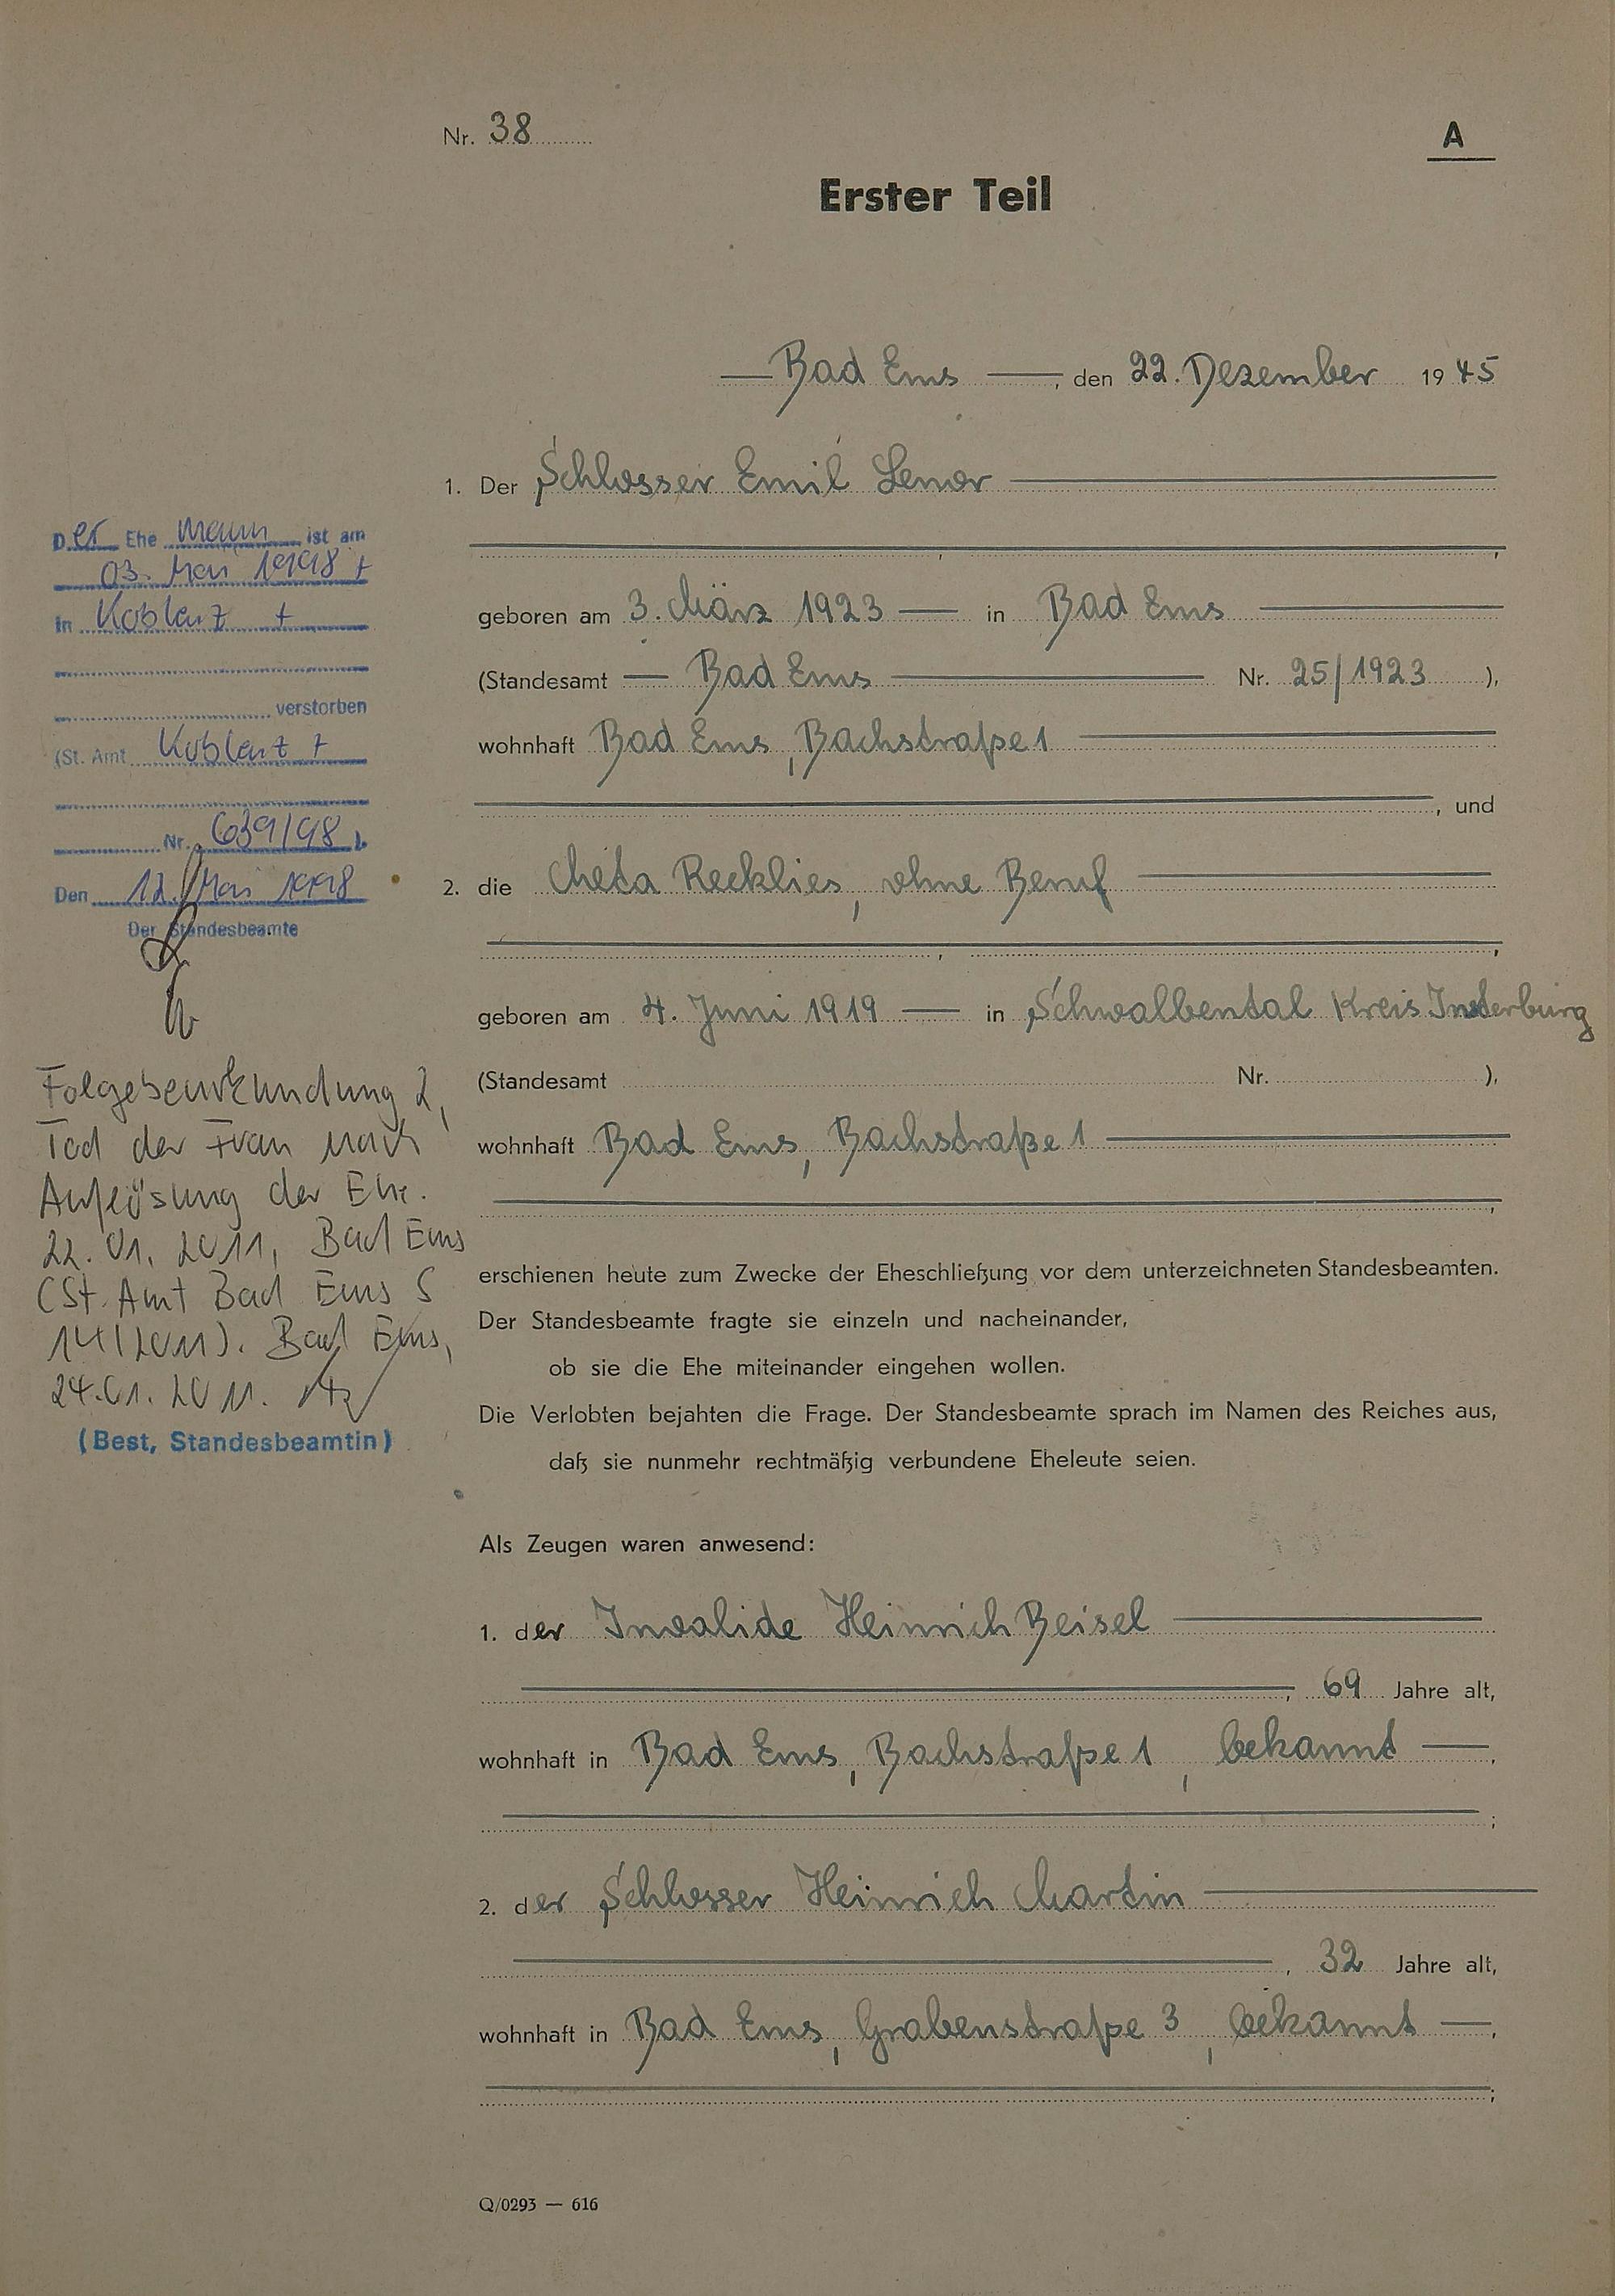 Nr. 38
A
Erster Teil
Bad Ems, den 22. Dezember 1945
1. Der Schlosser Emil Lenor
geboren am 3. März 1923 in Bad Ems
(Standesamt Bad Ems Nr. 25/1923 ),
wohnhaft Bad Ems, Bachstraße 1
, und
2. die Meta Recklies, ohne Beruf
geboren am 4. Juni 1919 in Schwalbental Kreis Insterburg
(Standesamt Nr. ),
wohnhaft Bad Ems, Bachstraße 1
erschienen heute zum Zwecke der Eheschließung vor dem unterzeichneten Standesbeamten.
Der Standesbeamte fragte sie einzeln und nacheinander,
ob sie die Ehe miteinander eingehen wollen.
Die Verlobten bejahten die Frage. Der Standesbeamte sprach im Namen des Reiches aus,
daß sie nunmehr rechtmäßig verbundene Eheleute seien.
Als Zeugen waren anwesend:
1. der Invalide Heinrich Beisel
, 69 Jahre alt,
wohnhaft in Bad Ems, Bachstraße 1, bekannt,
;
2. der Schlosser Heinrich Martin
, 32 Jahre alt,
wohnhaft in Bad Ems, Grabenstraße 3, bekannt,
;
Q/0293 — 616
Der Ehe mann ist am
03. Mai 1998 +
in Koblenz +
verstorben
(St. Amt Koblenz +
Nr. 639/98 ).
Den 12. Mai 1998
Der Standesbeamte
Folgebeurkundung 2,
Tod der Frau nach
Auflösung der Ehe.
22.01.2011, Bad Ems
(St. Amt Bad Ems S
14/2011). Bad Ems,
24.01.2011.
(Best, Standesbeamtin)